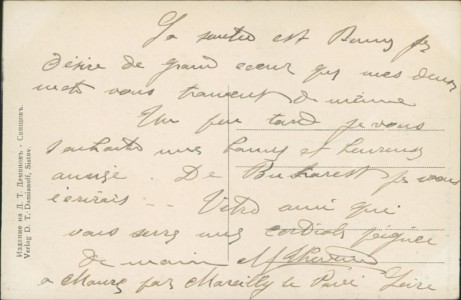 La santé est Bonne je
désire de grand coeur que mes deux
mots vous trouvent de même
Un peu tard je vous
souhaite une bonne et heureuse
année. De Bucharest je vous
écrirais -- Votre ami qui
vous serre une cordiale poignée
de main
a Mours par Marcilly le Pavé Loire
Издание на Д. Т. Деяновъ - Свищовъ.
Verlag D. T. Damianoff, Sistov.